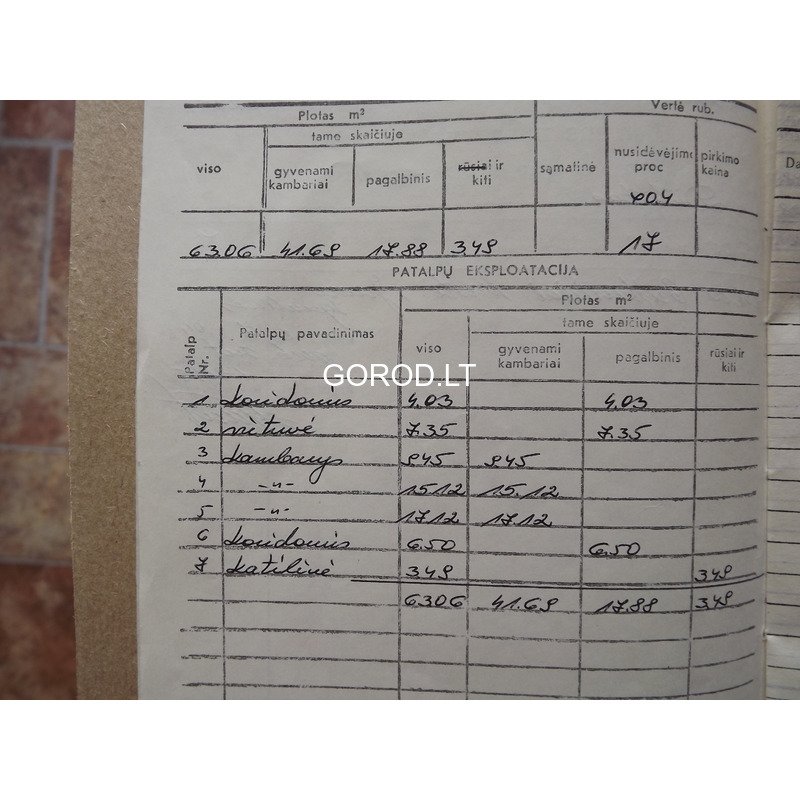 Plotas m² Vertė rub.
tame skaičiuje
viso gyvenami kambariai pagalbinis rūsiai ir kiti sąmatinė nusidėvėjimo proc pirkimo kaina
70.4
63.06 41.69 17.88 3.49 17
PATALPŲ EKSPLOATACIJA
Patalp Nr. Patalpų pavadinimas Plotas m²
tame skaičiuje
viso gyvenami kambariai pagalbinis rūsiai ir kiti
GOROD.LT
1 koridorius 4.03 4.03
2 virtuvė 7.35 7.35
3 kambarys 9.45 9.45
4 -"- 15.12 15.12
5 -"- 17.12 17.12
6 koridorius 6.50 6.50
7 katilinė 3.49 3.49
63.06 41.69 17.88 3.49